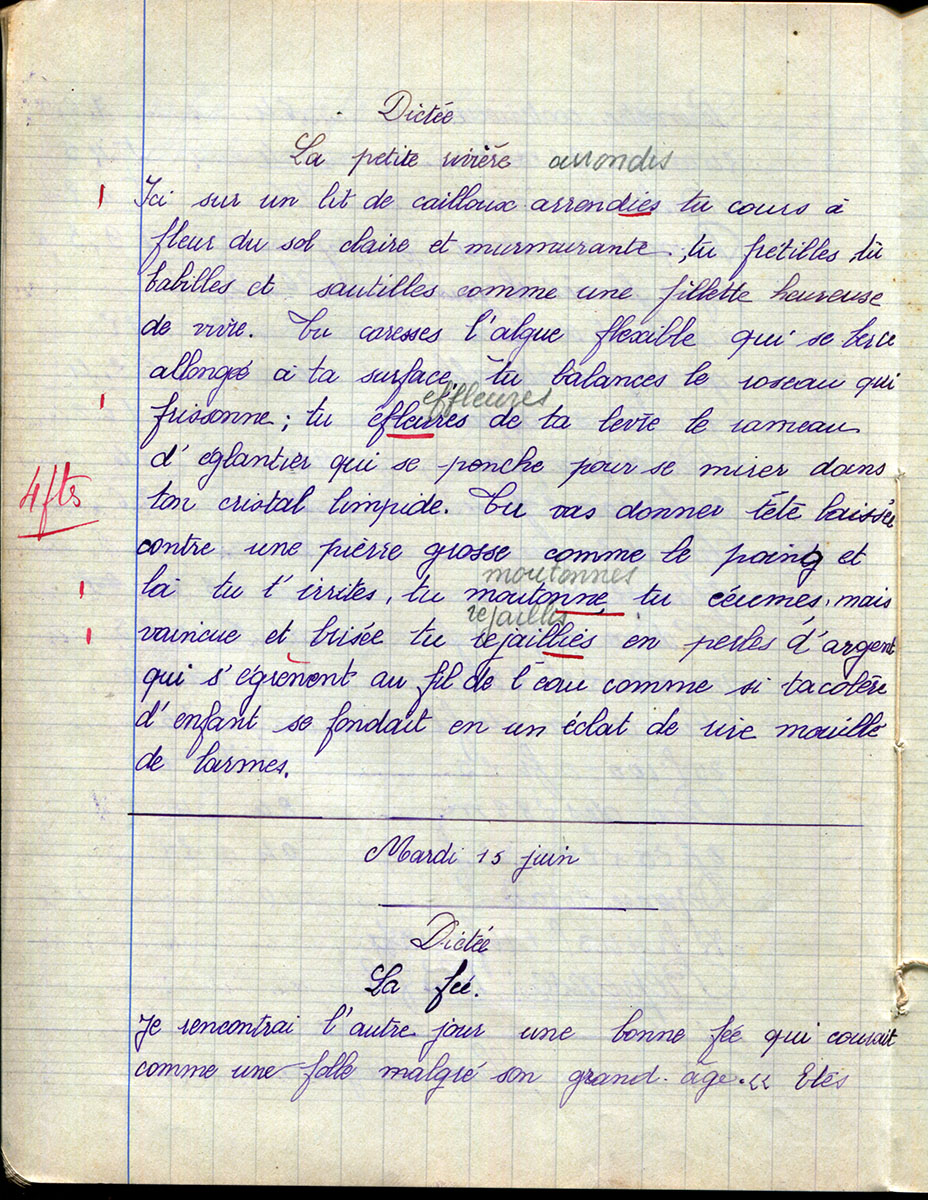 Dictée
La petite rivière arrondis
1 Ici sur un lit de cailloux arrondies tu cours à
fleur du sol claire et murmurante ; tu frétilles tu
babilles et sautilles comme une fillette heureuse
de vivre. Tu caresses l'algue flexible qui se berce
allongé à ta surface, tu balances le roseau qui
effleures
1 frissonne ; tu éfleures de ta levre le rameau
d'eglantier qui se penche pour se mirer dans
4 fts
ton cristal limpide. Tu vas donner tête baissée
contre une pierre grosse comme le poing et
moutonnes
1 là tu t'irrites, tu moutonne, tu écumes, mais
rejaillis
1 vaincue et brisée tu rejaillies en perles d'argent
qui s'égrènent au fil de l'eau comme si ta colère
d'enfant se fondait en un éclat de rire mouillé
de larmes.
Mardi 15 juin
Dictée
La fée.
Je rencontrai l'autre jour une bonne fée qui courait
comme une folle malgré son grand âge. « Etes